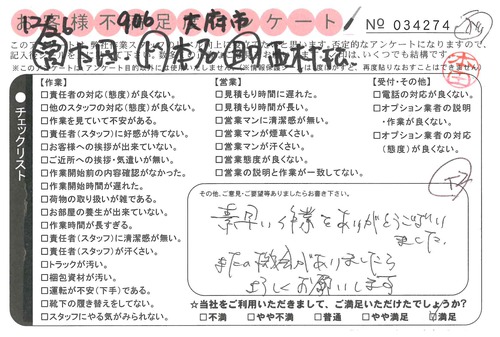 お客様不満足アンケート
12/26 906 大府市
No 034274
チェックリスト
【作業】
□責任者の対応(態度)が良くない。
□他のスタッフの対応(態度)が良くない。
□作業を見ていて不安がある。
□責任者(スタッフ)に好感が持てない。
□お客様への挨拶が出来ていない。
□ご近所への挨拶・気遣いが無い。
□作業開始前の内容確認がなかった。
□作業開始時間が遅れた。
□荷物の取り扱いが雑である。
□お部屋の養生が出来ていない。
□作業時間が長すぎる。
□責任者(スタッフ)に清潔感が無い。
□責任者(スタッフ)が汗くさい。
□トラックが汚い。
□梱包資材が汚い。
□運転が不安(下手)である。
□靴下の履き替えをしてない。
□スタッフにやる気がみられない。
【営業】
□見積もり時間に遅れた。
□見積もり時間が長い。
□営業マンに清潔感が無い。
□営業マンが煙草くさい。
□営業マンが汗くさい。
□営業態度が良くない。
□営業の説明と作業が一致してない。
【受付・その他】
□電話の対応が良くない。
□オプション業者の説明
・作業が良くない。
□オプション業者の対応
(態度)が良くない。
その他、ご意見・ご要望等ありましたらお書き下さい。
素早い作業をありがとうござい
ました。
またの機会がありましたら
よろしくお願いします
☆当社をご利用いただきまして、ご満足いただけたでしょうか?
□不満 □やや不満 □普通 □やや満足 ☑満足